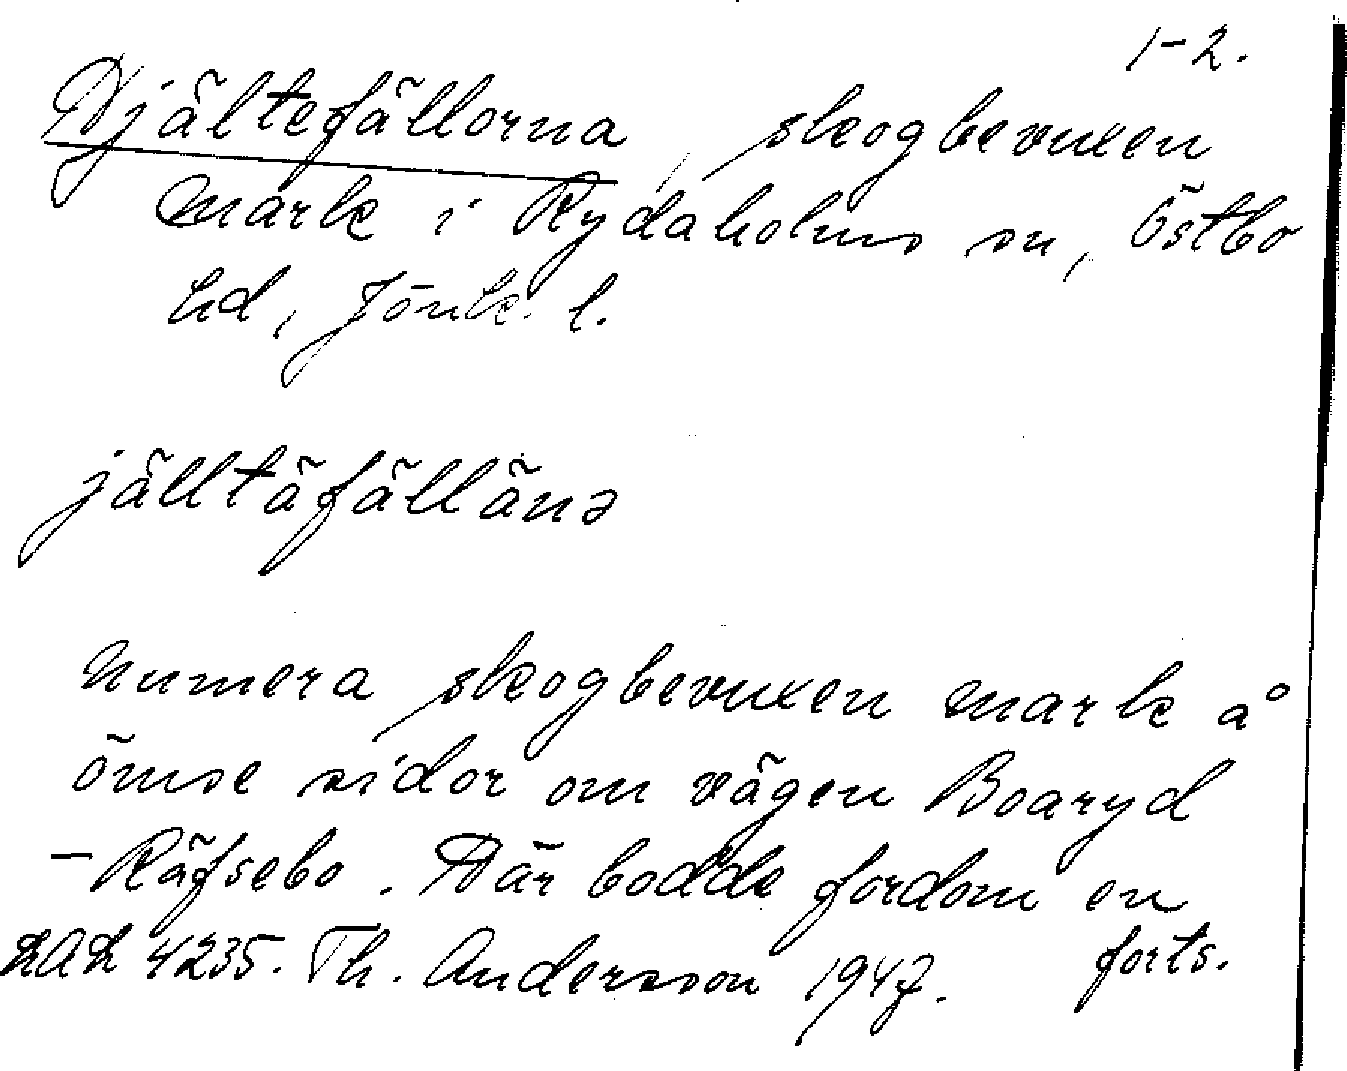 1-2.
Djältefällorna, skogbevuxen
mark i Rydaholms sn, Östbo
hd, Jönk. l.
jälltäfällänə
Numera skogbevuxen mark å
ömse sidor om vägen Boaryd
- Räfsebo. Där bodde fordom en
LAL 4235. Th. Andersson 1947. forts.